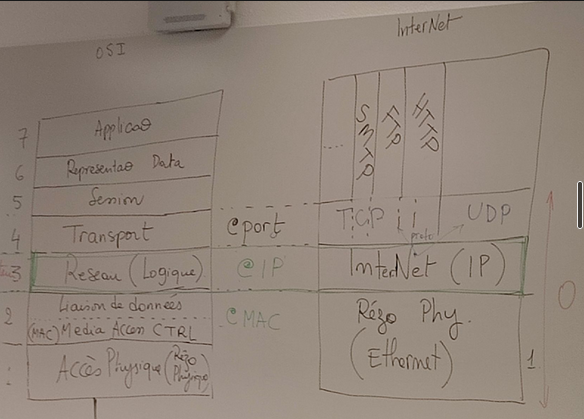 OSI
InterNet
7
Applicaə
6
Representaə Data
5
Session
4
Transport
@port
3
Reseau (Logique)
@IP
2
Liaison de données
(MAC) Media Access CTRL
@MAC
Accès Physique (Rézo Physique)
.....
SMTP
FTP
HTTP
TCP
UDP
ports
InterNet (IP)
Rézo Phy.
(Ethernet)
1
0